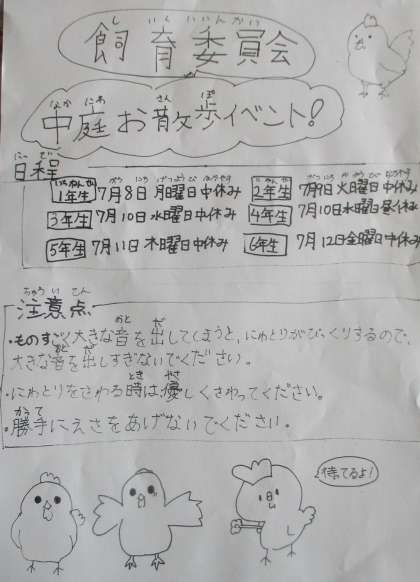 飼育委員会
しいくいいんかい
中庭お散歩イベント!
なかにわ さんぽ
日程
1年生 7月8日 月曜日中休み
2年生 7月9日 火曜日中休み
3年生 7月10日 水曜日中休み
4年生 7月10日 水曜日昼休み
5年生 7月11日 木曜日中休み
6年生 7月12日 金曜日中休み
注意点
・ものすごく大きな音を出してしまうと、にわとりがびっくりするので、
大きな音を出しすぎないでください。
・にわとりをさわる時は優しくさわってください。
・勝手にえさをあげないでください。
待てるよ!